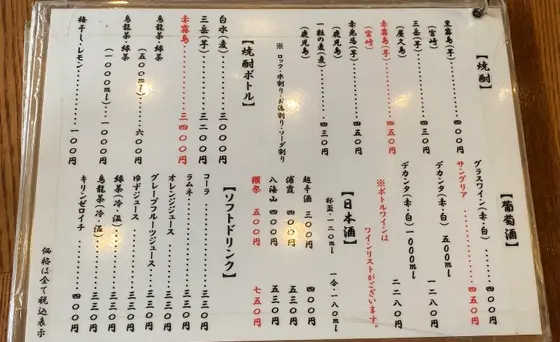 【焼酎】
黒霧島(芋)・・・・・・四〇〇円
(宮崎)
三岳(芋)・・・・・・四三〇円
(屋久島)
赤霧島(芋)・・・・・・四五〇円
(宮崎)
赤兎馬(芋)・・・・・・四五〇円
(鹿児島)
一粒の麦(麦)・・・・・・四三〇円
(鹿児島)
※ロック・水割り・お湯割り・ソーダ割り
【焼酎ボトル】
白水(麦)・・・・・・三〇〇〇円
三岳(芋)・・・・・・三二〇〇円
赤霧島・・・・・・三四〇〇円
烏龍茶・緑茶
(五〇〇ml)・・六〇〇円
烏龍茶・緑茶
(一〇〇〇ml)・・一〇〇〇円
梅干し・レモン・・・・・・一〇〇円
【葡萄酒】
グラスワイン(赤・白)・・・・・・四〇〇円
サングリア・・・・・・四五〇円
デカンタ(赤・白) 五〇〇ml 一二八〇円
デカンタ(赤・白) 一〇〇〇ml 二二八〇円
※ボトルワインは
ワインリストがございます。
【日本酒】
杯盃・一二〇ml 一合・一八〇ml
超辛酒 三〇〇円 四〇〇円
浦霞 四〇〇円 五三〇円
八海山 四〇〇円 五三〇円
獺祭 五〇〇円 七五〇円
【ソフトドリンク】
コーラ・・・・・・三二〇円
ラムネ・・・・・・三二〇円
オレンジジュース・・・・・・三三〇円
グレープフルーツジュース・・・三三〇円
ゆずジュース・・・・・・三三〇円
緑茶(冷・温)・・・・・・三三〇円
烏龍茶(冷・温)・・・・・・三三〇円
キリンゼロイチ・・・・・・四〇〇円
価格は全て税込表示